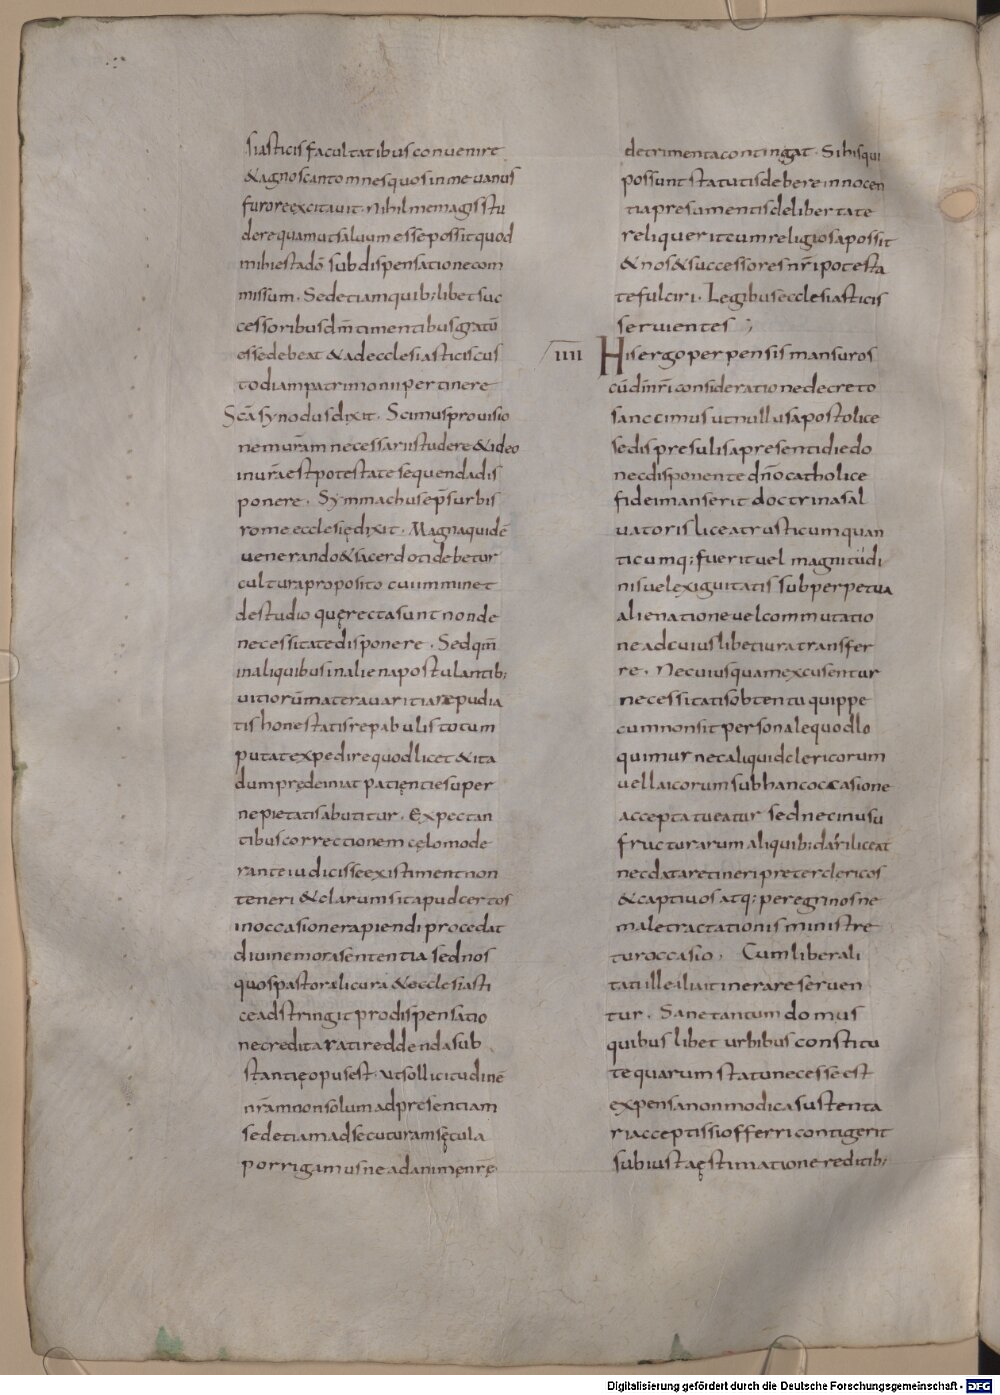 siasticis facultatibus conuenire
& agnoscant omnes quos in me uanus
furor excitauit. Nihil me magis stu
dere quam ut saluum esse possit quod
mihi est a dō sub dispensatione com
missum. Sed etiam quib; libet suc
cessoribus dm̄ timentibus gratū
esse debeat & ad ecclesiasticis cus
todiam patrimonii pertinere
Scā synodus dixit. Scimus prouisio
nem ur̄am necessarii studere & ideo
in ur̄a est potestate sequenda dis
ponere. Symmachus ep̄s urbis
rome ecclesię dixit. Magna quidē
uenerando & sacerdoti debetur
cultura proposito cui imminet
de studio quę recta sunt non de
necessitate disponere. Sed qm̄
in aliquibus in aliena postulantib;
uitiorū mater auaritia repudia
tis honestatis repabulis totum
putat expedire quod licet & ita
dum prędeiniat patientię super
ne pietatis abutitur. Expectan
tibus correctionem cęlo mode
rante iudicis se existiment non
teneri & clarum sit apud certos
in occasione rapiendi procedat
diuine mora sententia sed nos
quos pastoralicura & ecclesiasti
ce adstringit pro dispensatio
ne credita rati reddenda sub
stantię opus est. ut sollicitudinē
nr̄am non solum ad presentiam
sed etiam ad secuturam sęcula
porrigamus ne ad animę nr̄ę
detrimenta contingat. Si his qui
possunt statutis debere innocen
tia presumentis de libertate
reliquerit eum religiosa possit
& nos & successores nr̄i potesta
te fulciri. Legibus ecclesiasticis
seruientes ;
IIII His ergo perpensis mansuros
cū di nr̄i consideratione decreto
sanccimus ut nullus apostolice
sedis presulis a presenti die do
nec disponente dn̄o catholice
fidei manserit doctrina sal
uatoris liceat rusticum quan
ticumq; fuerit uel magnitudi
nis uel exiguitatis sub perpetua
alienatione uel commutatio
ne ad cuiuslibet iura transfer
re. Nec uiusquam excusentur
necessitatis obtentu quippe
cum non sit personale quod lo
quimur nec aliqui de clericorum
uel laicorum sub hanc occasione
accepta tueatur sed nec in usu
fructurarum aliquib; dari liceat
nec data retineri preter clericos
& captiuos atq; peregrinos ne
male tractationis ministre
tur occasio. Cum liberali
tati illę alia itinerare seruen
tur. Sane tantum domus
quibus libet urbibus constitu
te quarum statu necesse est
expensa non modica sustenta
ri acceptis si offerri contigerit
sub iusta ęstimatione reditib;